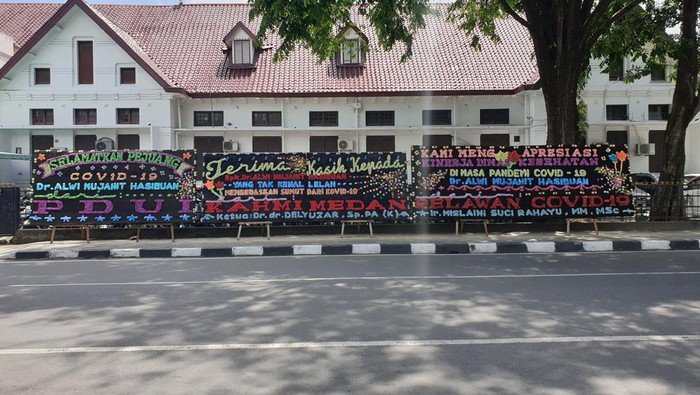 SELAMATKAN PEJUANG
COVID-19
Dr. ALWI MUJAHIT HASIBUAN
PDUI
Terima Kasih Kepada
Bpk. Dr. ALWI MUJAHIT HASIBUAN
YANG TAK KENAL LELAH
MEMBEBASKAN SUMUT DARI COVID-19
KAHMI MEDAN
Ketua: Dr. dr. DELYUZAR Sp.PA (K)
KAMI MENG APRESIASI
KINERJA DINAS KESEHATAN
DI MASA PANDEMI COVID-19
Dr. ALWI MUJAHIT HASIBUAN
RELAWAN COVID-19
dr. MISLAINI SUCI RAHAYU, MM, MSc.